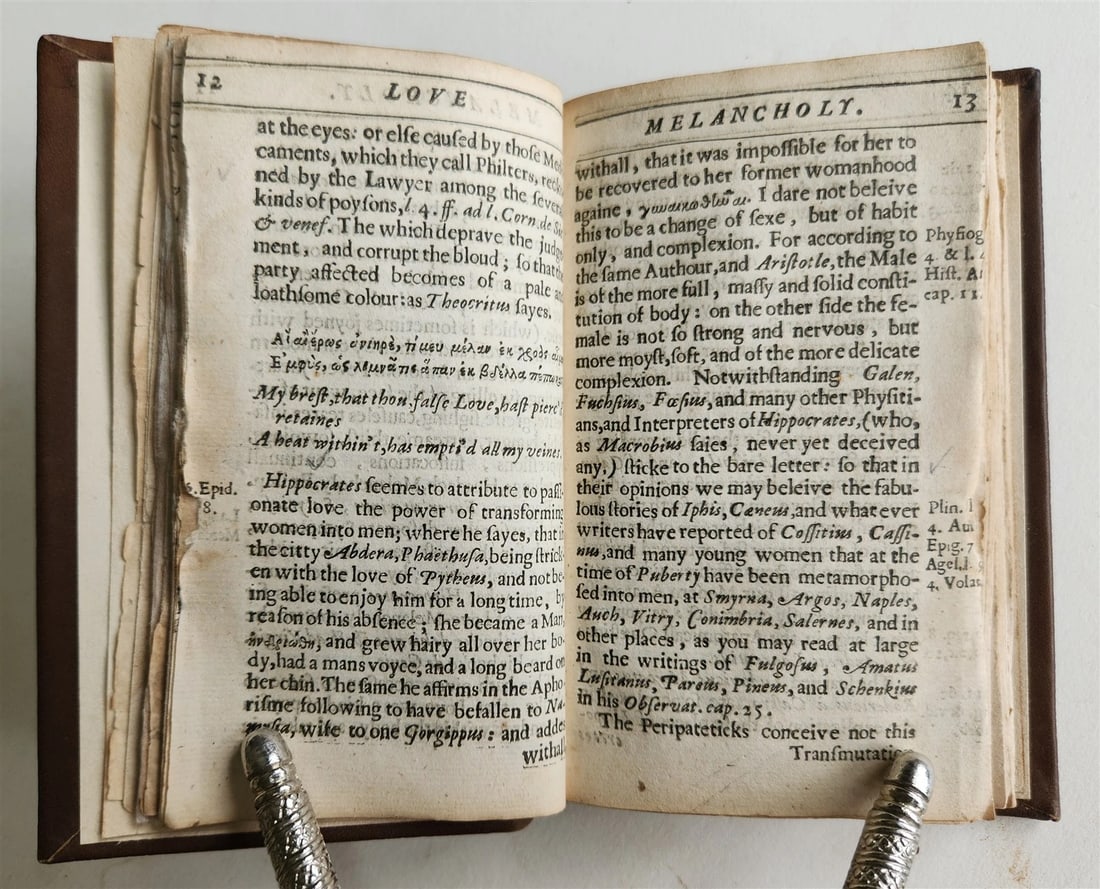 12 LOVE
at the eyes: or elſe cauſed by thoſe
caments, which they call Philters,
ned by the Lawyer among the
kinds of poyſons, l. 4. ff. ad l. Corn. de
& venef. The which deprave the
ment, and corrupt the bloud; ſo that
party affected becomes of a pale
loathſome colour: as Theocritus ſayes,
My breſt, that thou falſe Love, haſt
retaines
A heat within't, has empti'd all my veines.
Hippocrates ſeemes to attribute to
onate love the power of transforming
women into men; where he ſayes, that
the citty Abdera, Phaethuſa, being
en with the love of Pytheus, and not be-
ing able to enjoy him for a long time,
reaſon of his abſence; ſhe became a Man,
and grew hairy all over her bo-
dy, had a mans voyce, and a long beard
her chin. The ſame he affirms in the Apho-
riſme following to have befallen to
wife to one Gorgippus: and
6. Epid.
8.
MELANCHOLY. 13
withall, that it was impoſſible for her to
be recovered to her former womanhood
againe, I dare not beleive
this to be a change of ſexe, but of habit
only, and complexion. For according to
the ſame Authour, and Ariſtotle, the Male
is of the more full, maſſy and ſolid conſti-
tution of body: on the other ſide the fe-
male is not ſo ſtrong and nervous, but
more moyſt, ſoft, and of the more delicate
complexion. Notwithſtanding Galen,
Fuchſius, Fœſius, and many other Phyſiti-
ans, and Interpreters of Hippocrates, (who,
as Macrobius ſaies, never yet deceived
any,) ſticke to the bare letter: ſo that in
their opinions we may beleive the fabu-
lous ſtories of Iphis, Cæneus, and what ever
writers have reported of Coſſitius, Caſſi-
nus, and many young women that at the
time of Puberty have been metamorpho-
ſed into men, at Smyrna, Argos, Naples,
Auch, Vitry, Conimbria, Salernes, and in
other places, as you may read at large
in the writings of Fulgoſus, Amatus
Luſitanus, Paræus, Pineus, and Schenkius
in his Obſervat. cap. 25.
The Peripateticks conceive not this
Phyſiog
4. & l.
Hiſt.
cap. 11.
Plin. l
4.
Epig. 7
4.